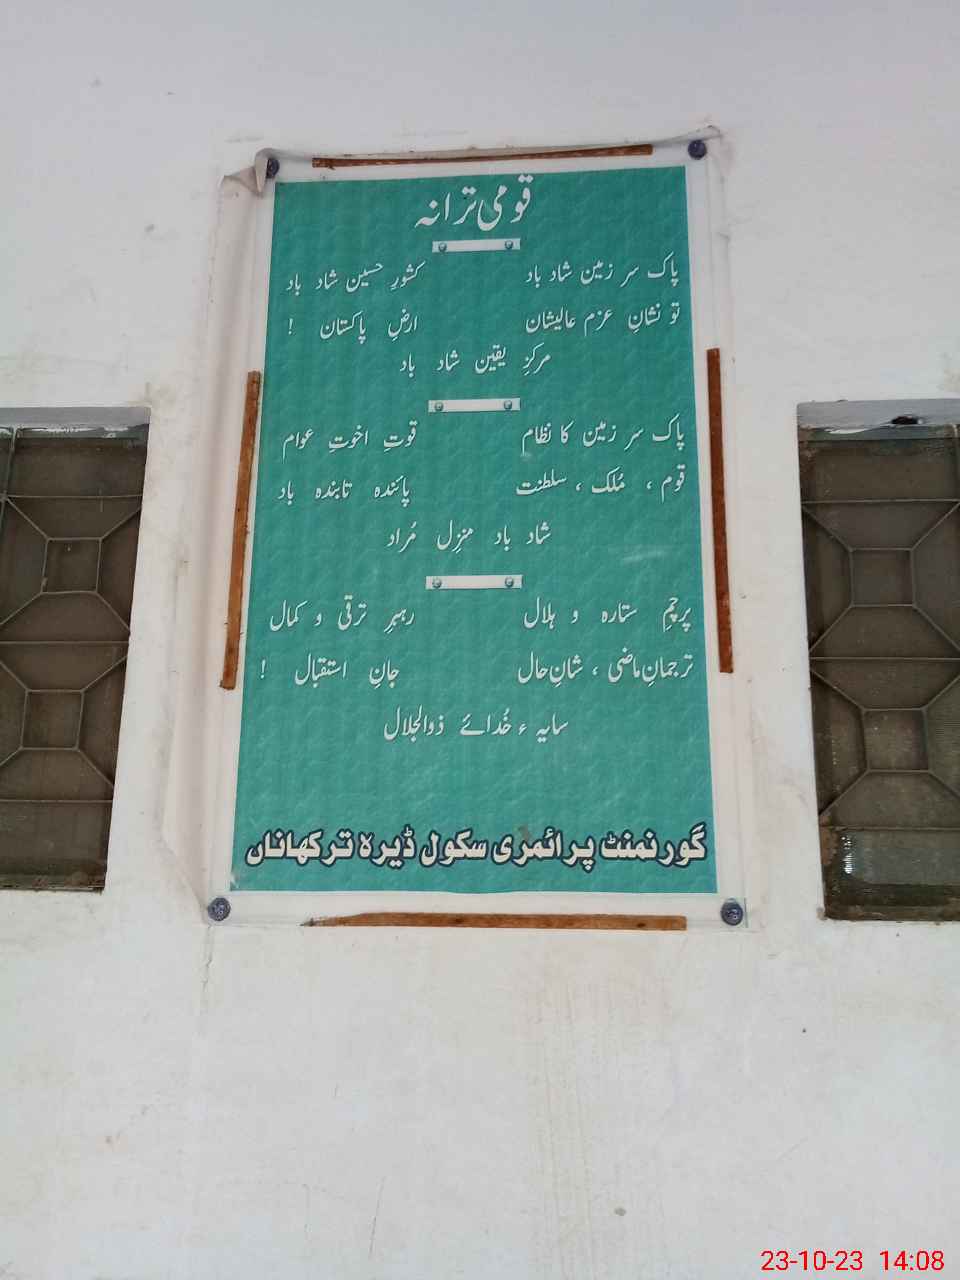 قومی ترانہ
پاک سر زمین شاد باد کشورِ حسین شاد باد
تو نشانِ عزم عالیشان ارضِ پاکستان !
مرکزِ یقین شاد باد
پاک سر زمین کا نظام قوتِ اخوتِ عوام
قوم ، مُلک ، سلطنت پائندہ تابندہ باد
شاد باد منزِل مُراد
پرچمِ ستارہ و ہلال رہبرِ ترقی و کمال
ترجمانِ ماضی ، شانِ حال جانِ استقبال !
سایہ ء خُدائے ذوالجلال
گورنمنٹ پرائمری سکول ڈیرہ ترکھاناں
23-10-23 14:08